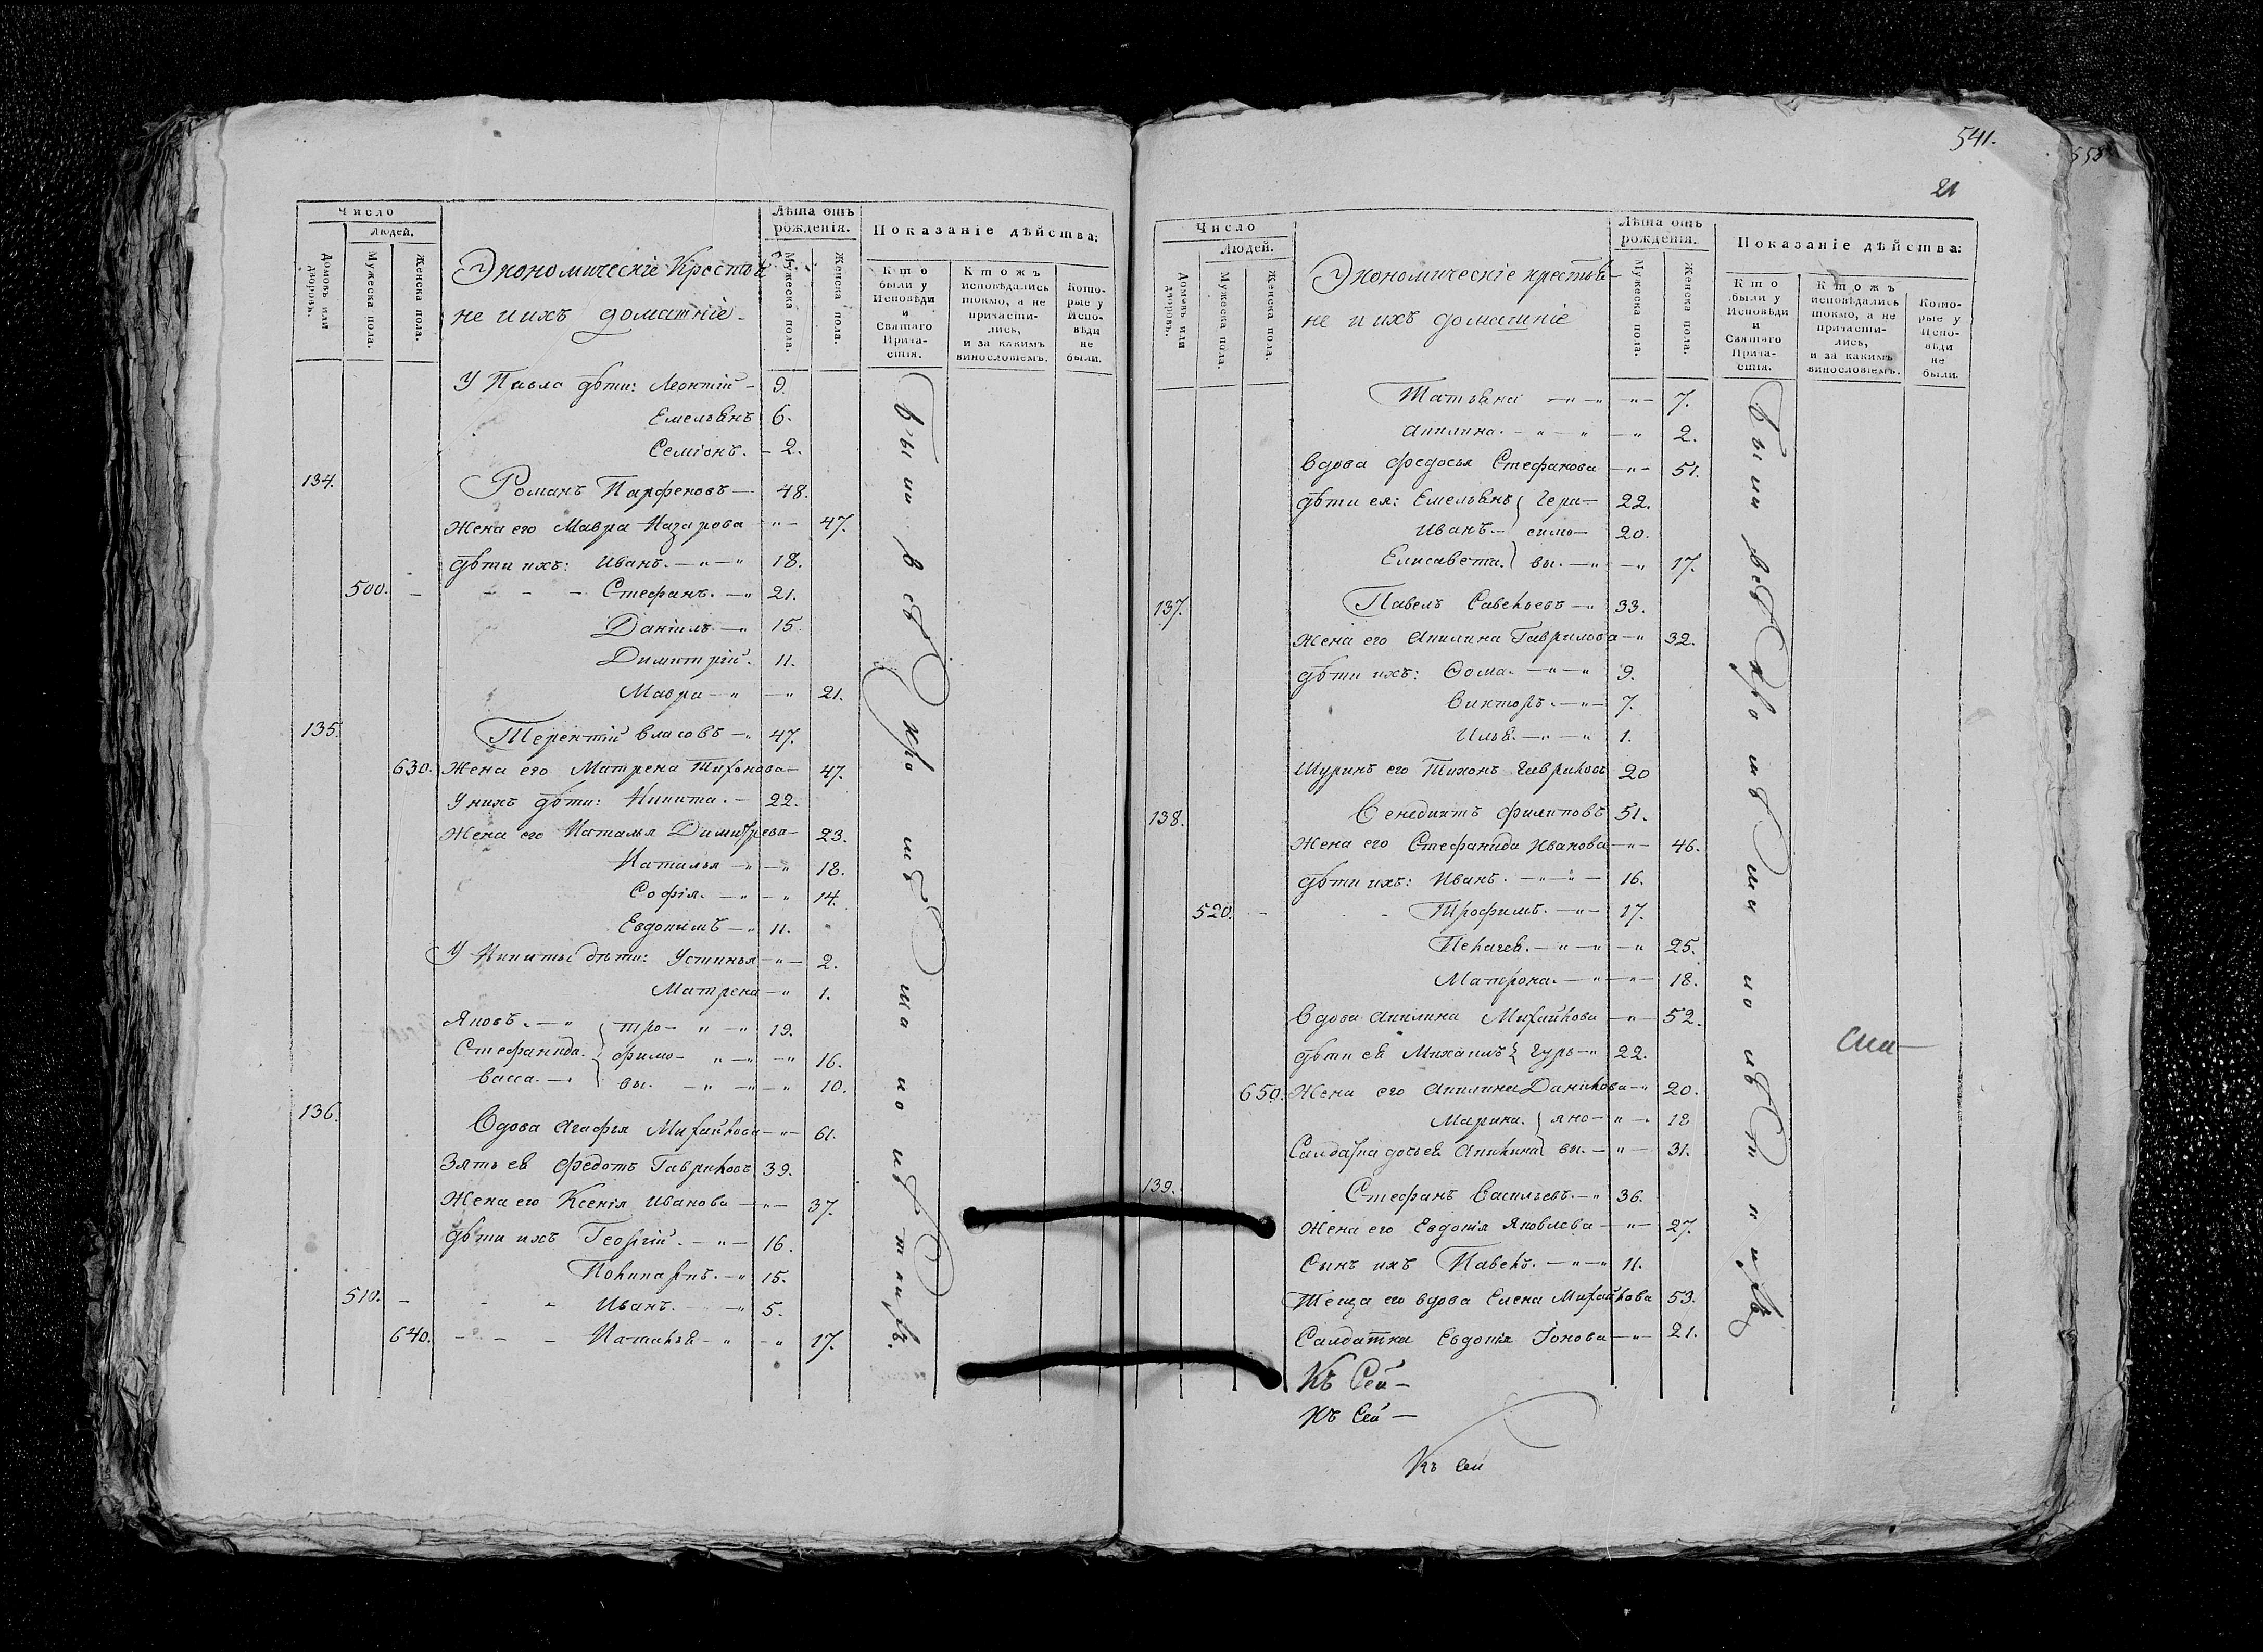 Число
Людей.
Домовъ или дворовъ.
Мужеска пола.
Женска пола.
Экономическіе Крестья-
не и ихъ домашніе
Лѣта отъ рожденія.
Мужеска пола.
Женска пола.
Показаніе дѣйства:
Кто были у Исповѣди и Святаго Прича-стія.
Кто жъ исповѣдались токмо, а не причасти-лись, и за какимъ винословіемъ.
Кото-рые у Испо-вѣди не были.
У Павла дѣти: Леонтій - 9.
Емельянъ 6.
Семіонъ. - 2.
134. Романъ Парфеновъ — 48.
Жена его Мавра Назарова - " - 47.
дѣти ихъ: Иванъ. - " - " 18.
500. - - - - Стефанъ. - " 21.
Даніилъ - " 15.
Димитрій. 11.
Мавра - " - " 21.
135. Терентій Власовъ - " 47.
630. Жена его Матрена Тихонова - 47.
У нихъ дѣти: Никита. - 22.
Жена его Наталья Димитрева - 23.
Наталья - " - " 18.
Софія. - " - " 14.
Евдокимъ - " 11.
У Никиты дѣти: Устинья - " - 2.
Матрена - " 1.
Яковъ. - " } Тро- " - " 19.
Стефанида. } фимо- " - " - " 16.
Васса. - " } вы. - " - " - " 10.
136. Вдова Агафья Михайлова - " - 61.
Зять ея Федотъ Гавриловъ 39.
Жена его Ксенія Иванова - " - 37.
дѣти ихъ Георгій. - " - 16.
Поликарпъ. - " 15.
510. - - - Иванъ. - " 5.
640. - - - Наталья - " - " 17.
541.
21
558
Число
Людей.
Домовъ или дворовъ.
Мужеска пола.
Женска пола.
Экономическіе крестья-
не и ихъ домашніе
Лѣта отъ рожденія.
Мужеска пола.
Женска пола.
Показаніе дѣйства:
Кто были у Исповѣди и Святаго Прича-стія.
Кто жъ исповѣдались токмо, а не причасти-лись, и за какимъ винословіемъ.
Кото-рые у Испо-вѣди не были.
Татьяна - " - " - " - 7.
Акилина. - " - " - " 2.
Вдова Федосья Стефанова - " - 51.
дѣти ея: Емельянъ { Гера- 22.
Иванъ - } симо- 20.
Елисавета. } вы. - " - " 17.
137. Павелъ Савельевъ - " 33.
Жена его Акилина Гаврилова - " 32.
дѣти ихъ: Ѳома. - " - " 9.
Викторъ. - " - 7.
Илья. - " - " 1.
Шуринъ его Тихонъ Гавриловъ 20
138. Венедиктъ Филиповъ 51.
Жена его Стефанида Иванова - " - 46.
дѣти ихъ: Иванъ. - " - " - 16.
520. - - Трофимъ. - " - 17.
Пелагея. - " - " - " 25.
Матрона. - " - " - 18.
Вдова Акилина Михайлова - " - 52.
дѣти ея Михаилъ } Гурь- " 22.
650. Жена его Акилина Данилова - " 20.
Марина. } яно- " - 18
Салдатка дочь ея Акилина } вы. - " - 31.
139. Стефанъ Васильевъ. - " 36.
Жена его Евдокія Яковлева - " - 27.
Сынъ ихъ Павелъ. - " - " 11.
Теща его вдова Елена Михайлова 53.
Салдатка Евдокія Іонова - " - 21.
Къ Сей -
Къ Сей -
Къ сей